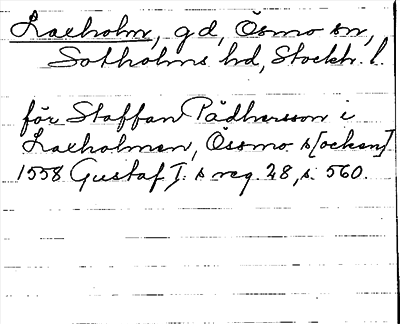 Laxholm, gd, Ösmo sn,
Sotholms hd, Stockh. l.
för Staffan Pädhersson i
Laxholmen, Össmo s[ocken]
1558 Gustaf I. s reg. 28, s. 560.